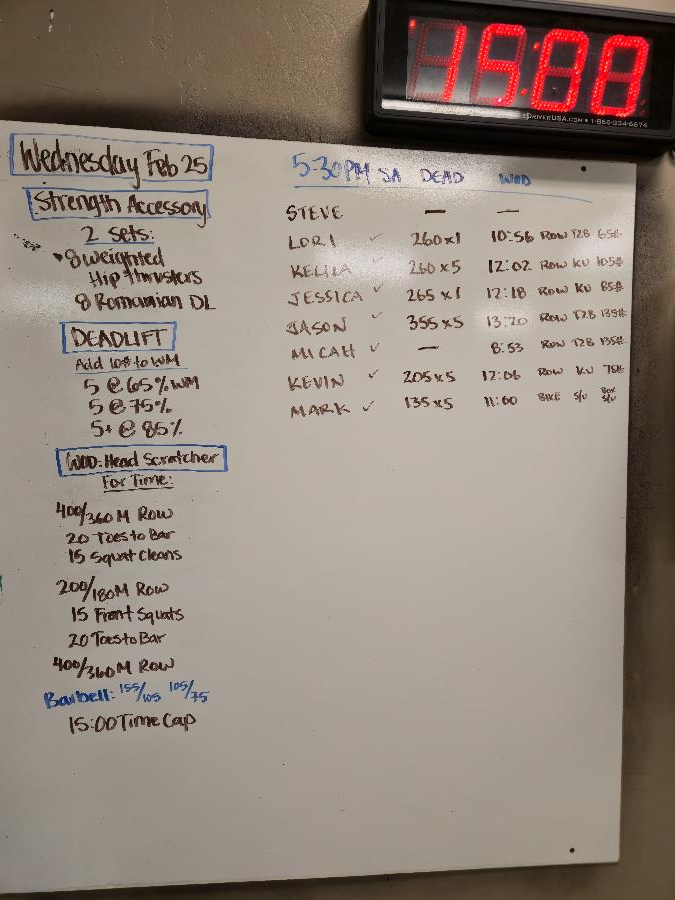 15:00
SDRIVERUSA.COM • 1-866-334-6674
Wednesday Feb 25
Strength Accessory
2 Sets:
8 Weighted
Hip Thrusters
8 Romanian DL
DEADLIFT
Add 10# to WM
5 @ 65% WM
5 @ 75%
5+ @ 85%
WOD: Head Scratcher
For Time:
400/360 M Row
20 Toes to Bar
15 Squat Cleans
200/180M Row
15 Front Squats
20 Toes to Bar
400/360 M Row
Barbell: 155/105 105/75
15:00 Time Cap
5:30PM SA DEAD WOD
STEVE — —
LORI ✓ 260x1 10:56 ROW T2B 65#
✓ 260x5 12:02 ROW KU 105#
JESSICA ✓ 265x1 12:18 ROW KU 85#
JASON ✓ 355x5 13:20 ROW T2B 135#
MICAH ✓ — 8:53 ROW T2B 135#
KEVIN ✓ 205x5 12:06 ROW KU
MARK ✓ 135x5 11:00 BIKE S/U BOX S/U